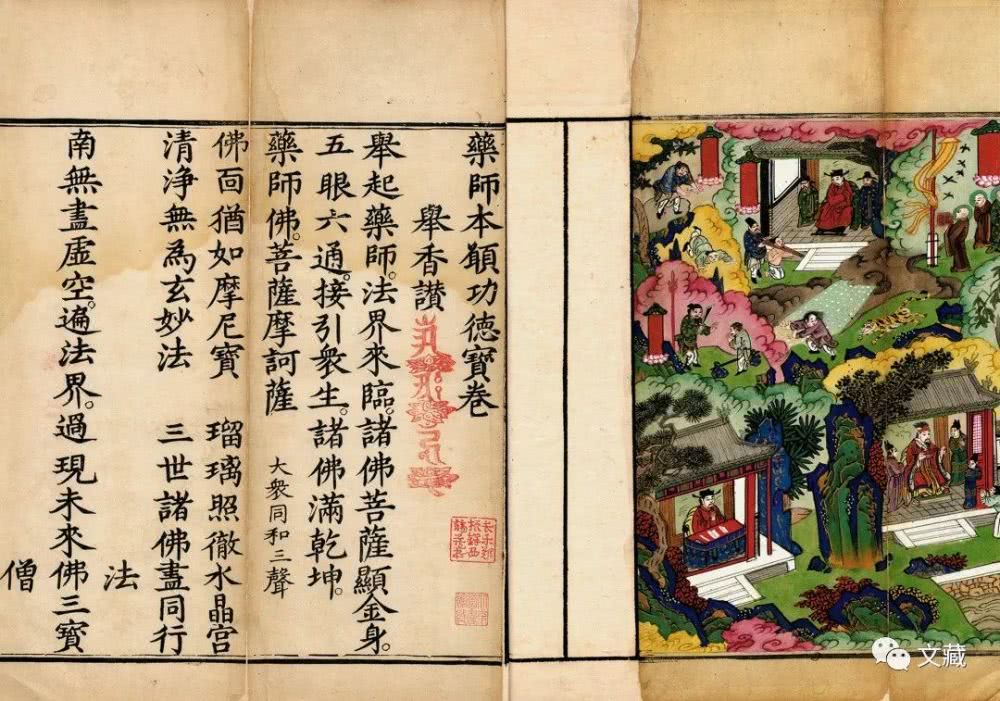 藥師本願功德寶卷
舉香讃
舉起藥師。法界來臨。諸佛菩薩顯金身。
五眼六通。接引衆生。諸佛滿乾坤。
藥師佛。菩薩摩訶薩 大衆同和三聲
佛面猶如摩尼寶 瑠璃照徹水晶宫
清浄無為玄妙法 三世諸佛盡同行
法
南無盡虛空。遍法界。過現未來佛三寶
僧
文藏